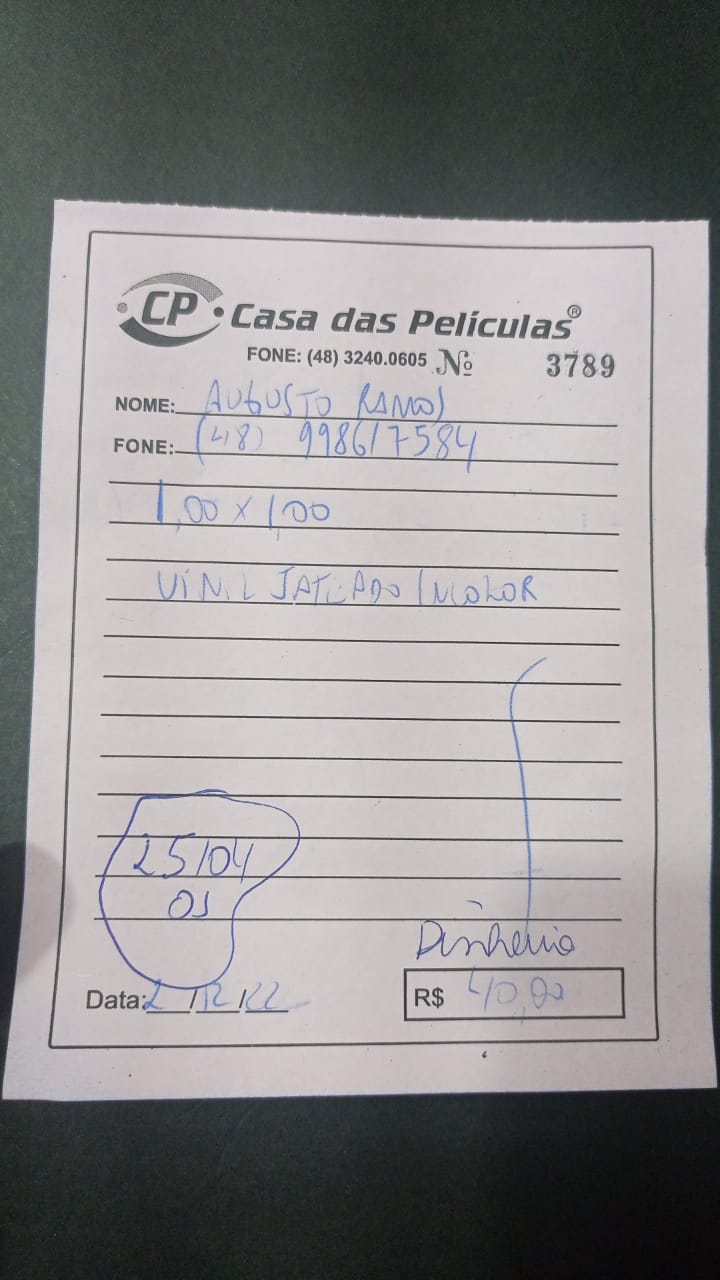 CP Casa das Películas®
FONE: (48) 3240.0605 Nº 3789
NOME: AUGUSTO RAMOS
FONE: (48) 998617584
1,00 x 1,00
VINIL JATEADO INCOLOR
25/04
OS
Dinheiro
Data: 2/12/22 R$ 40,00